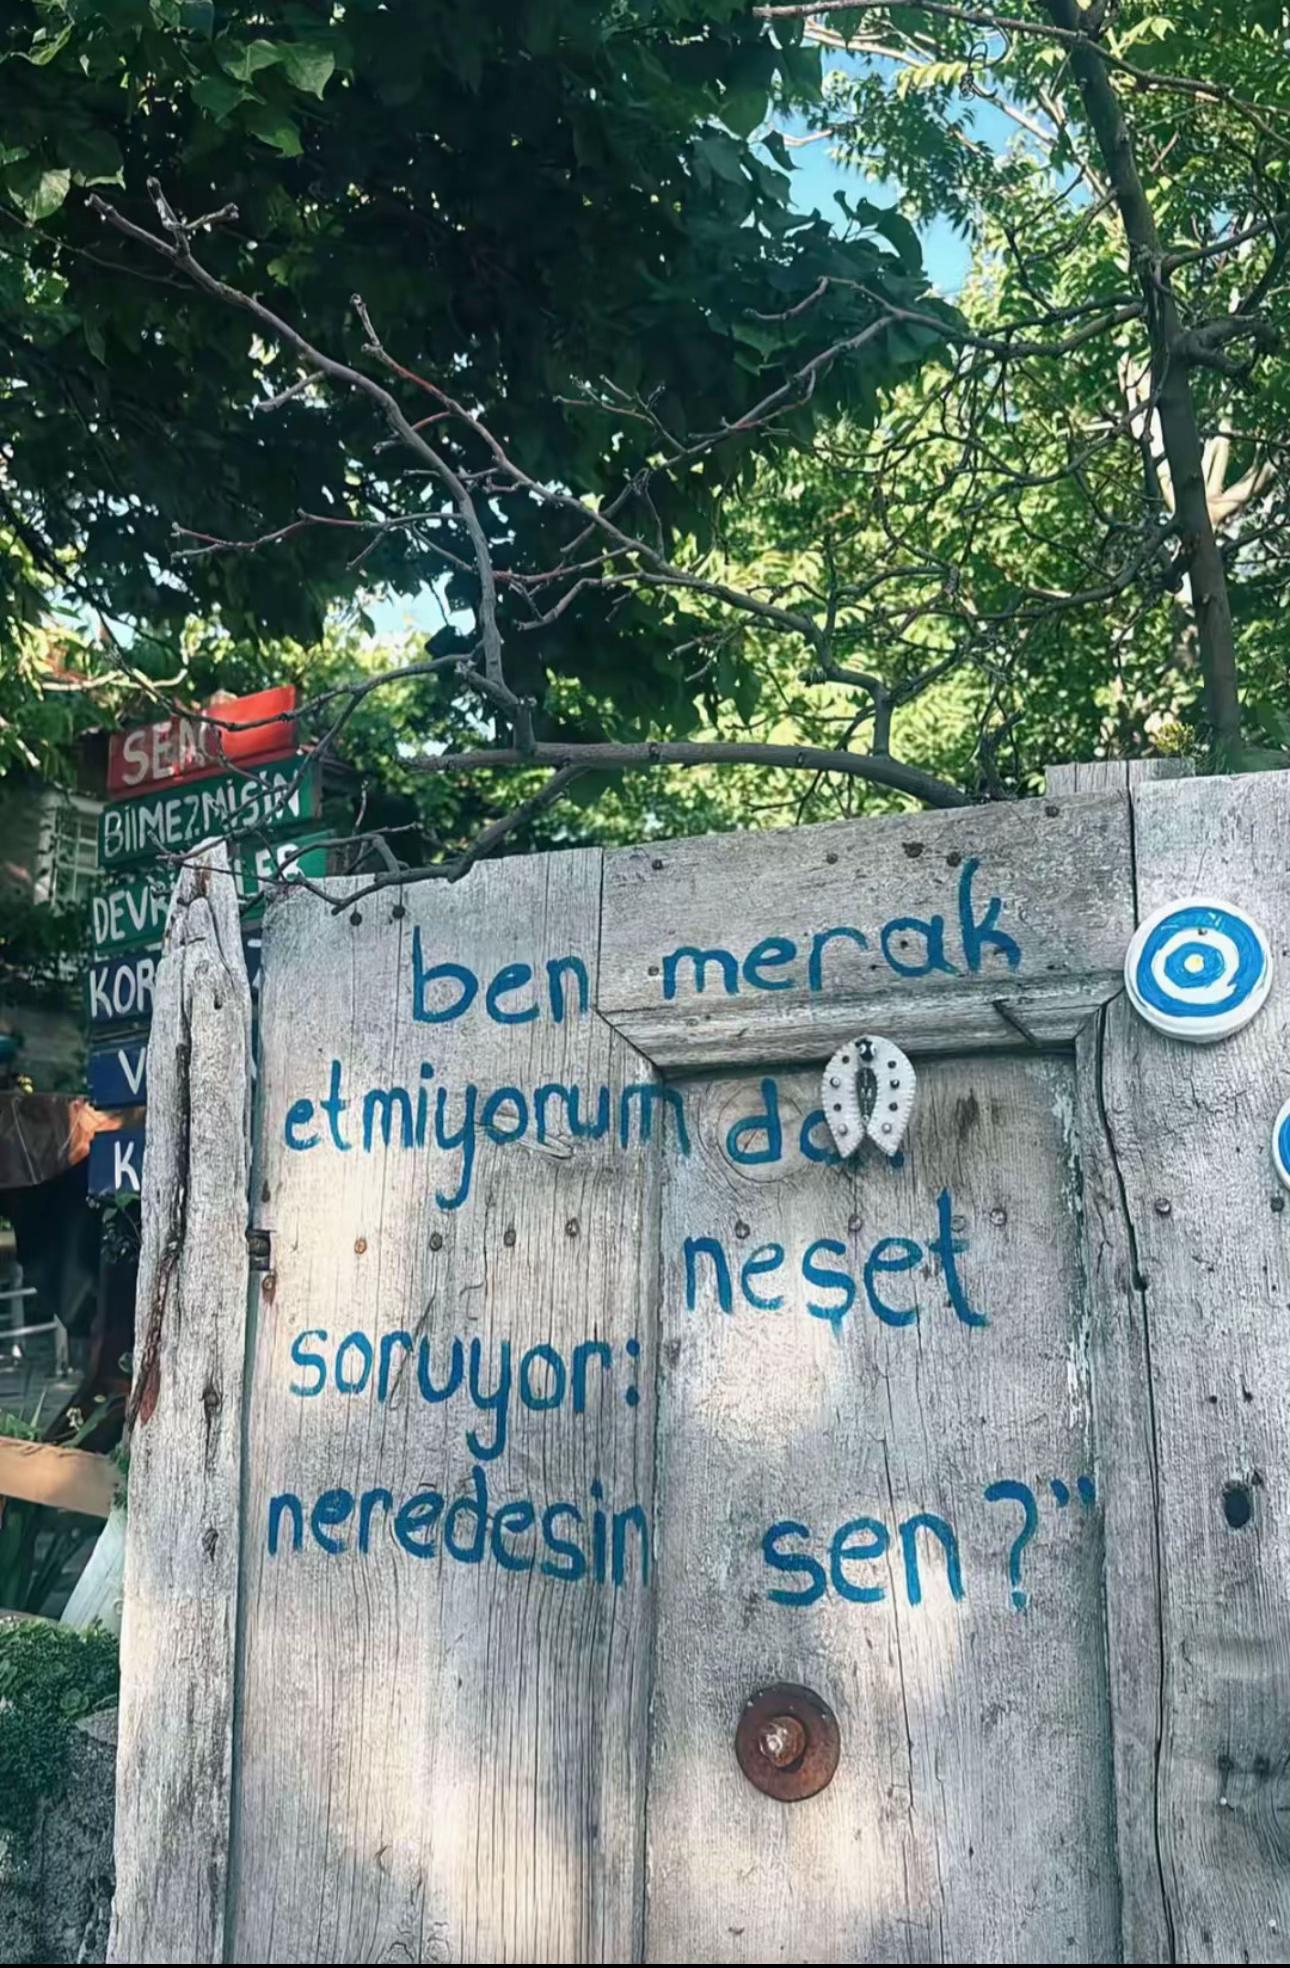 SEN
BİlMEZMİSİN
ben merak
etmiyorum da
neşet
soruyor:
neredesin sen?”